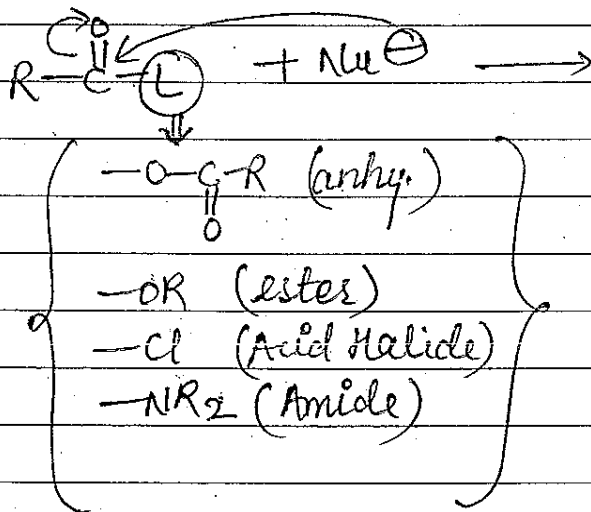 O
||
R—C—L + Nu⊖ ⟶
—O—C—R (anhy.)
||
O
—OR (ester)
—Cl (Acid Halide)
—NR2 (Amide)